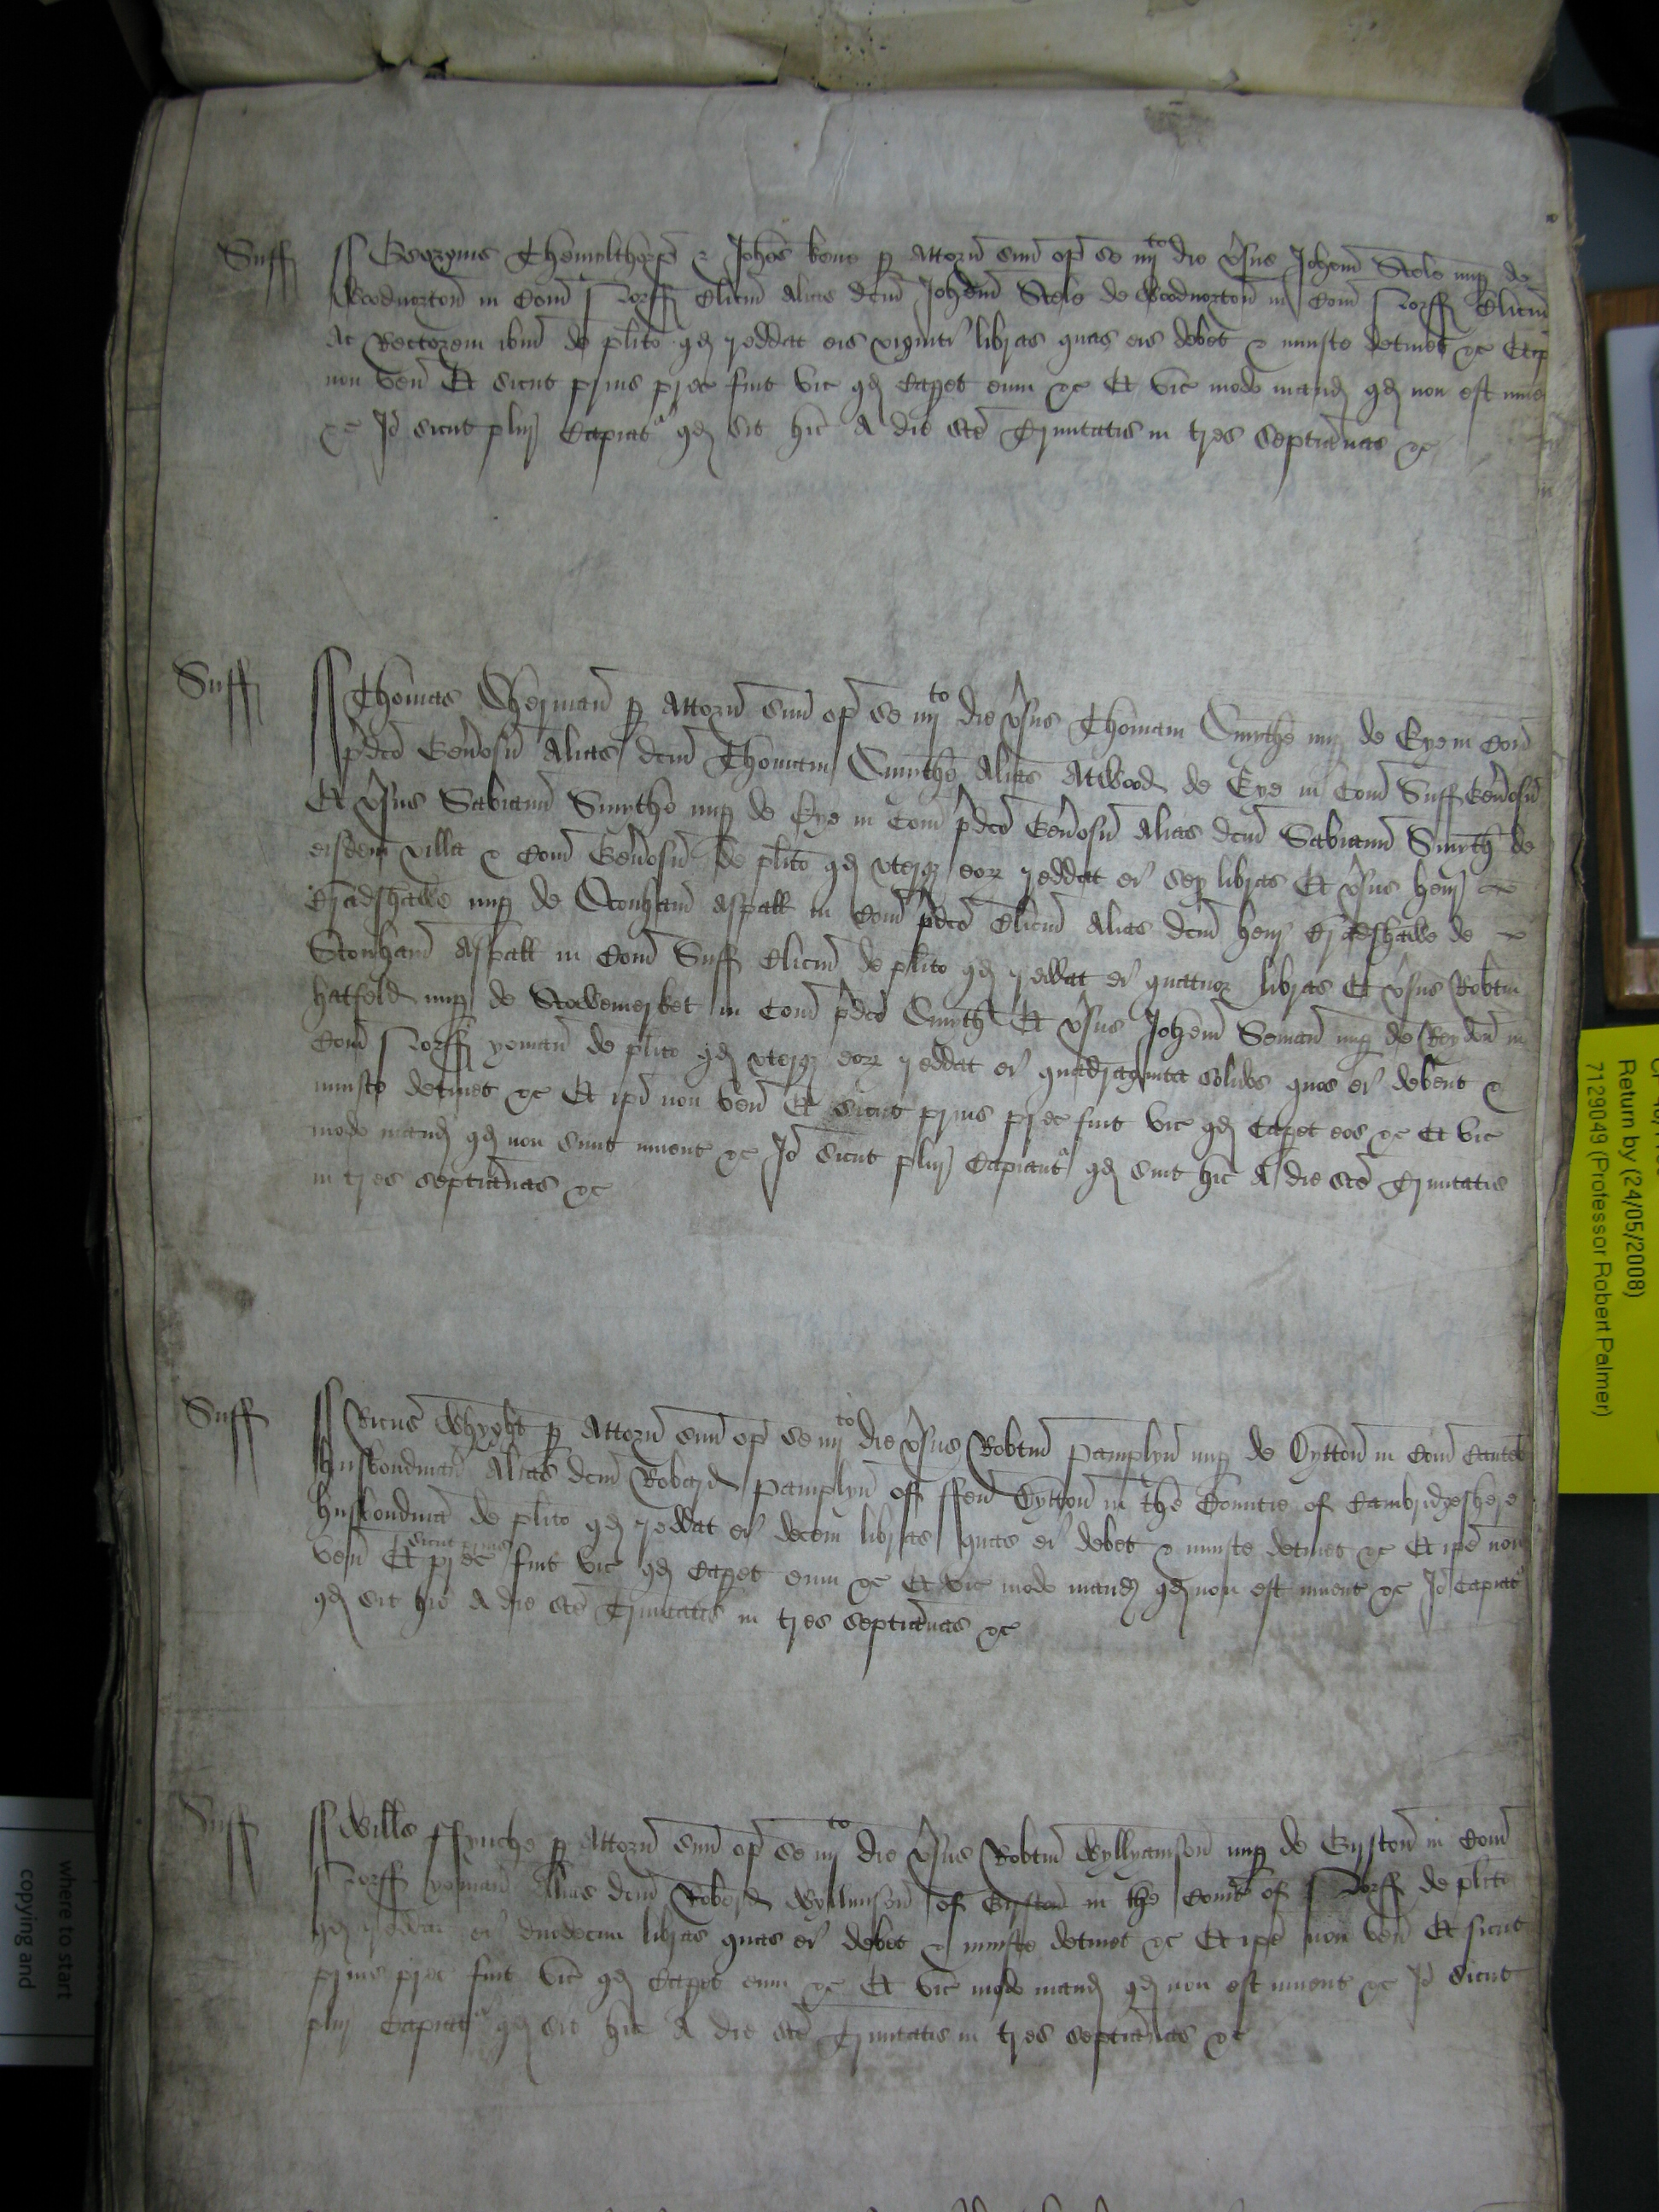 Suff
Georgius Themylthorp & Johes kene p Attorn suu op se iiij to die vsus Johem Stele nup de
Woodnorton in Com Norff Clicu Alias dcm Johem Stele de Woodnorton in Com Norff Clicu
ac Rectorem ibm de plito qd reddat eis viginti libras quas eis debet & iniuste detinet &c Et ip
non ven Et sicut prius prec fuit vic qd Capet eum &c Et vic modo mand qd non est inue
&c Io sicut plur Capiat qd sit hic A die sce Trinitatis in tres septianas &c
Suff
Thomas Sherman p Attorn suu op se iiij to die vsus Thomam Smythe nup de Eye in Com
pdco Genosu Alias dcm Thomam Smythe Alias Atwood de Eye in Com Suff Genosu
Et vsus Sabianu Smythe nup de Eye in Com pdco Genosu Alias dcm Sabianu Smyth de
eisdem villa & Com Genosu de plito qd vterq eor reddat ei sex libras Et vsus henr
Cradshawe nup de Stonham Aspall in Com pdco Clicu Alias dcm henr Cradshawe de
Stonham Aspall in Com Suff Clicu de plito qd reddat ei quatuor libras Et vsus Robtm
hatfeld nup de Stowemerket in Com pdco Smyth Et vsus Johem Seman nup de Reydon in
Com Norff yoman de plito qd vterq eor reddat ei quadraginta solidos quos ei debent &
iniuste detinet &c Et ipi non ven Et sicut prius prec fuit vic qd Capet eos &c Et vic
modo mand qd non sunt inuent &c Io sicut plur Capiant qd sint hic A die sce Trinitatis
in tres septianas &c
Suff
Ricus Whyght p Attorn suu op se iiij to die vsus Robtm Pamplyn nup de Dytton in Com Canteb
husbondman Alias dcm Robard Pamplyn of ffen Dytton in the Countie of Cambridgeshere
husbondman de plito qd reddat ei decem libras quas ei debet & iniuste detinet &c Et ipe non
ven Et sicut prius prec fuit vic qd Capet eum &c Et vic modo mand qd non est inuent &c Io Capiat
qd sit hic A die sce Trinitatis in tres septianas &c
Suff
Wills ffynche p Attorn suu op se iiij to die vsus Robtm Wyllyamson nup de Gyston in Com
Norff yoman Alias dcm Robard Wyllmson of Gyston in the Comte of Norff de plito
qd reddat ei duodecim libras quas ei debet & iniuste detinet &c Et ipe non ven Et sicut
prius prec fuit vic qd Capet eum &c Et vic modo mand qd non est inuent &c Io sicut
plur Capiat qd sit hic A die sce Trinitatis in tres septianas &c
Return by (24/05/2008)
7129049 (Professor Robert Palmer)
where to start
copying and